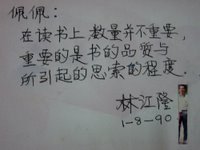 佩佩：
在读书上，数量并不重要，
重要的是书的品质与
所引起的思索的程度．
林江隆
1-8-90